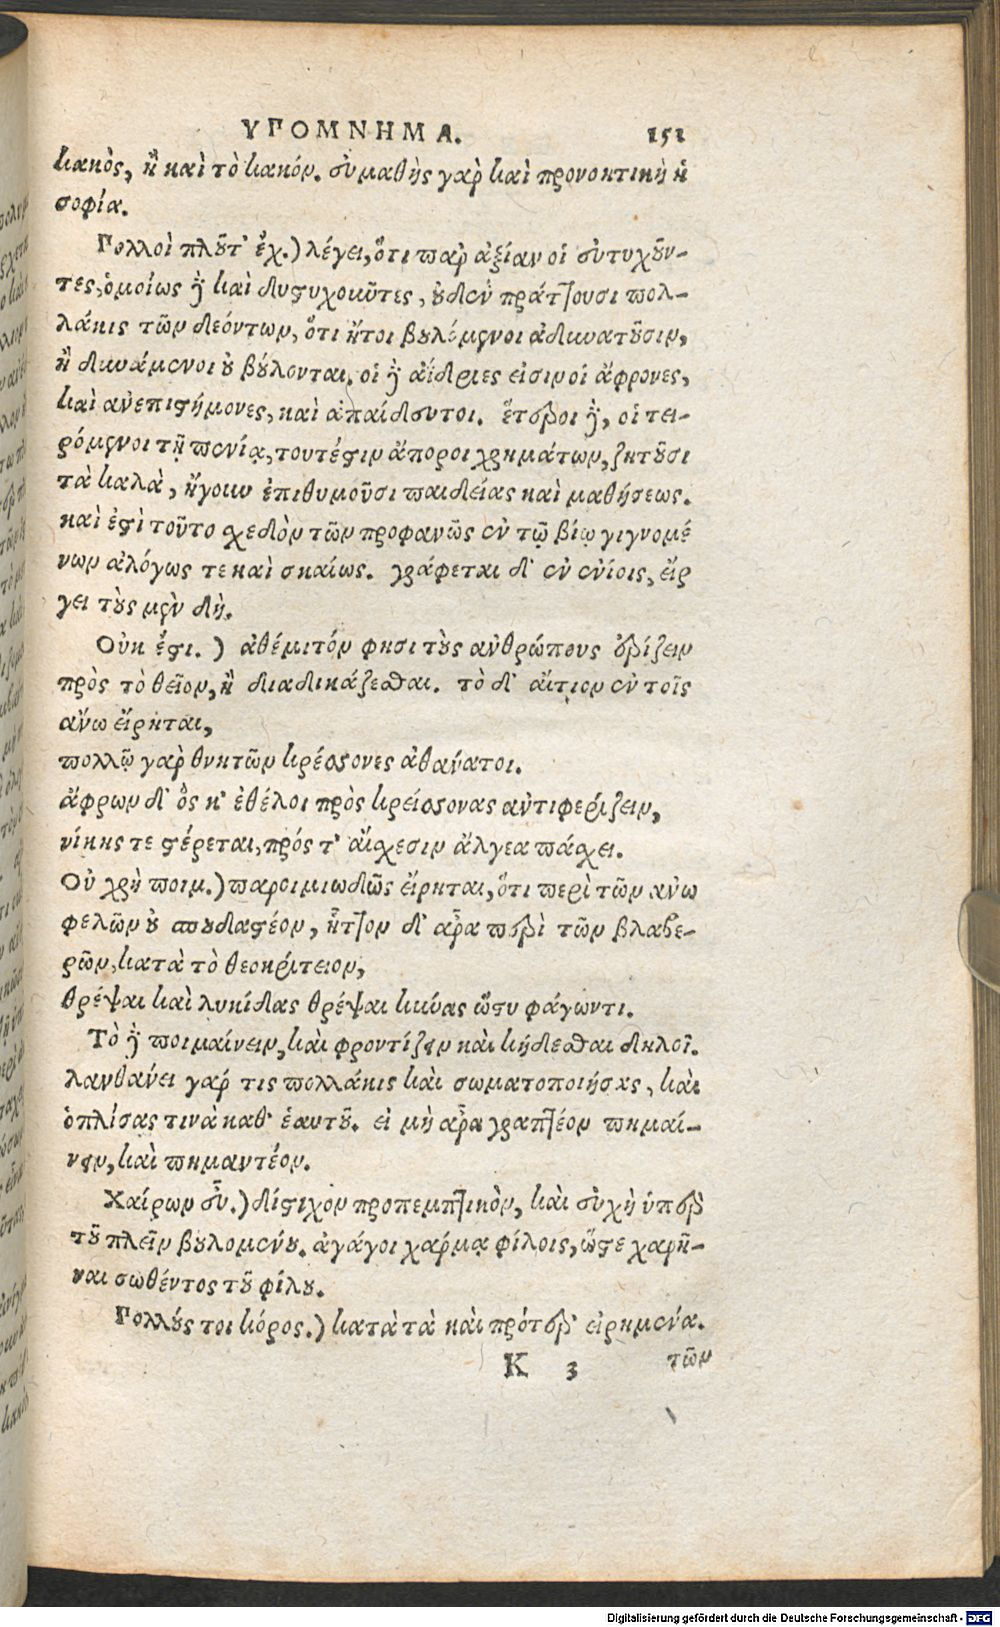 ΥΠΟΜΝΗΜΑ. 151
κακὸς, ἢ καὶ τὸ κακόν. εὐμαθὴς γὰρ καὶ προνοητικὴ ἡ
σοφία.
Πολλοὶ πλοῦτ' ἔχ.) λέγει, ὅτι παρ' ἀξίαν οἱ εὐτυχοῦν-
τες, ὁμοίως δὲ καὶ δυστυχοῦντες, οὐδὲν πράττουσι πολ-
λάκις τῶν δεόντων, ὅτι ἤτοι βουλόμενοι ἀδυνατοῦσιν,
ἢ δυνάμενοι οὐ βούλονται. οἱ δὲ ἀΐδριες εἰσιν οἱ ἄφρονες,
καὶ ἀνεπιστήμονες, καὶ ἀπαίδευτοι. ἕτεροι δὲ, οἱ τει-
ρόμενοι τῇ πενίᾳ, τουτέστιν ἄποροι χρημάτων, ζητοῦσι
τὰ καλὰ, ἤγουν ἐπιθυμοῦσι παιδείας καὶ μαθήσεως.
καὶ ἐστὶ τοῦτο σχεδὸν τῶν προφανῶς ἐν τῷ βίῳ γιγνομέ
νων ἀλόγως τε καὶ σκαίως. γράφεται δ' ἐν ἐνίοις, εἴρ
γει τοὺς μὲν δὴ.
Οὐκ ἔστι. ) ἀθέμιτόν φησι τοὺς ἀνθρώπους ἐρίζειν
πρὸς τὸ θεῖον, ἢ διαδικάζεσθαι. τὸ δ' αἴτιον ἐν τοῖς
ἄνω εἴρηται,
πολλῷ γὰρ θνητῶν κρέσσονες ἀθανάτοι.
ἄφρων δ' ὅς κ' ἐθέλοι πρὸς κρείσσονας ἀντιφερίζειν,
νίκης τε στέρεται, πρός τ' αἴσχεσιν ἄλγεα πάσχει.
Οὐ χρὴ ποιμ.) παροιμιωδῶς εἴρηται, ὅτι περὶ τῶν ἀνω
φελῶν οὐ σπουδαστέον, ἧττον δ' ἆρα περὶ τῶν βλαβε-
ρῶν, κατὰ τὸ θεοκρίτειον,
θρέψαι καὶ λυκίδας θρέψαι κύνας ὥς τυ φάγωντι.
Τὸ δὲ ποιμαίνειν, καὶ φροντίζειν καὶ κήδεσθαι δηλοῖ.
λανθάνει γάρ τις πολλάκις καὶ σωματοποιήσας, καὶ
ὁπλίσας τινὰ καθ' ἑαυτοῦ. εἰ μὴ ἆρα γραπτέον πημαί-
νειν, καὶ πημαντέον.
Χαίρων εὖ.) δίστιχον προπεμπτικὸν, καὶ εὐχὴ ὑπὲρ
τοῦ πλεῖν βουλομένου. ἀγάγοι χάρμα φίλοις, ὥστε χαρῆ-
ναι σωθέντος τοῦ φίλου.
Πολλούς τοι κόρος.) κατὰ τὰ καὶ πρότερ' εἰρημένα.
K 3 τῶν
Digitalisierung gefördert durch die Deutsche Forschungsgemeinschaft - DFG